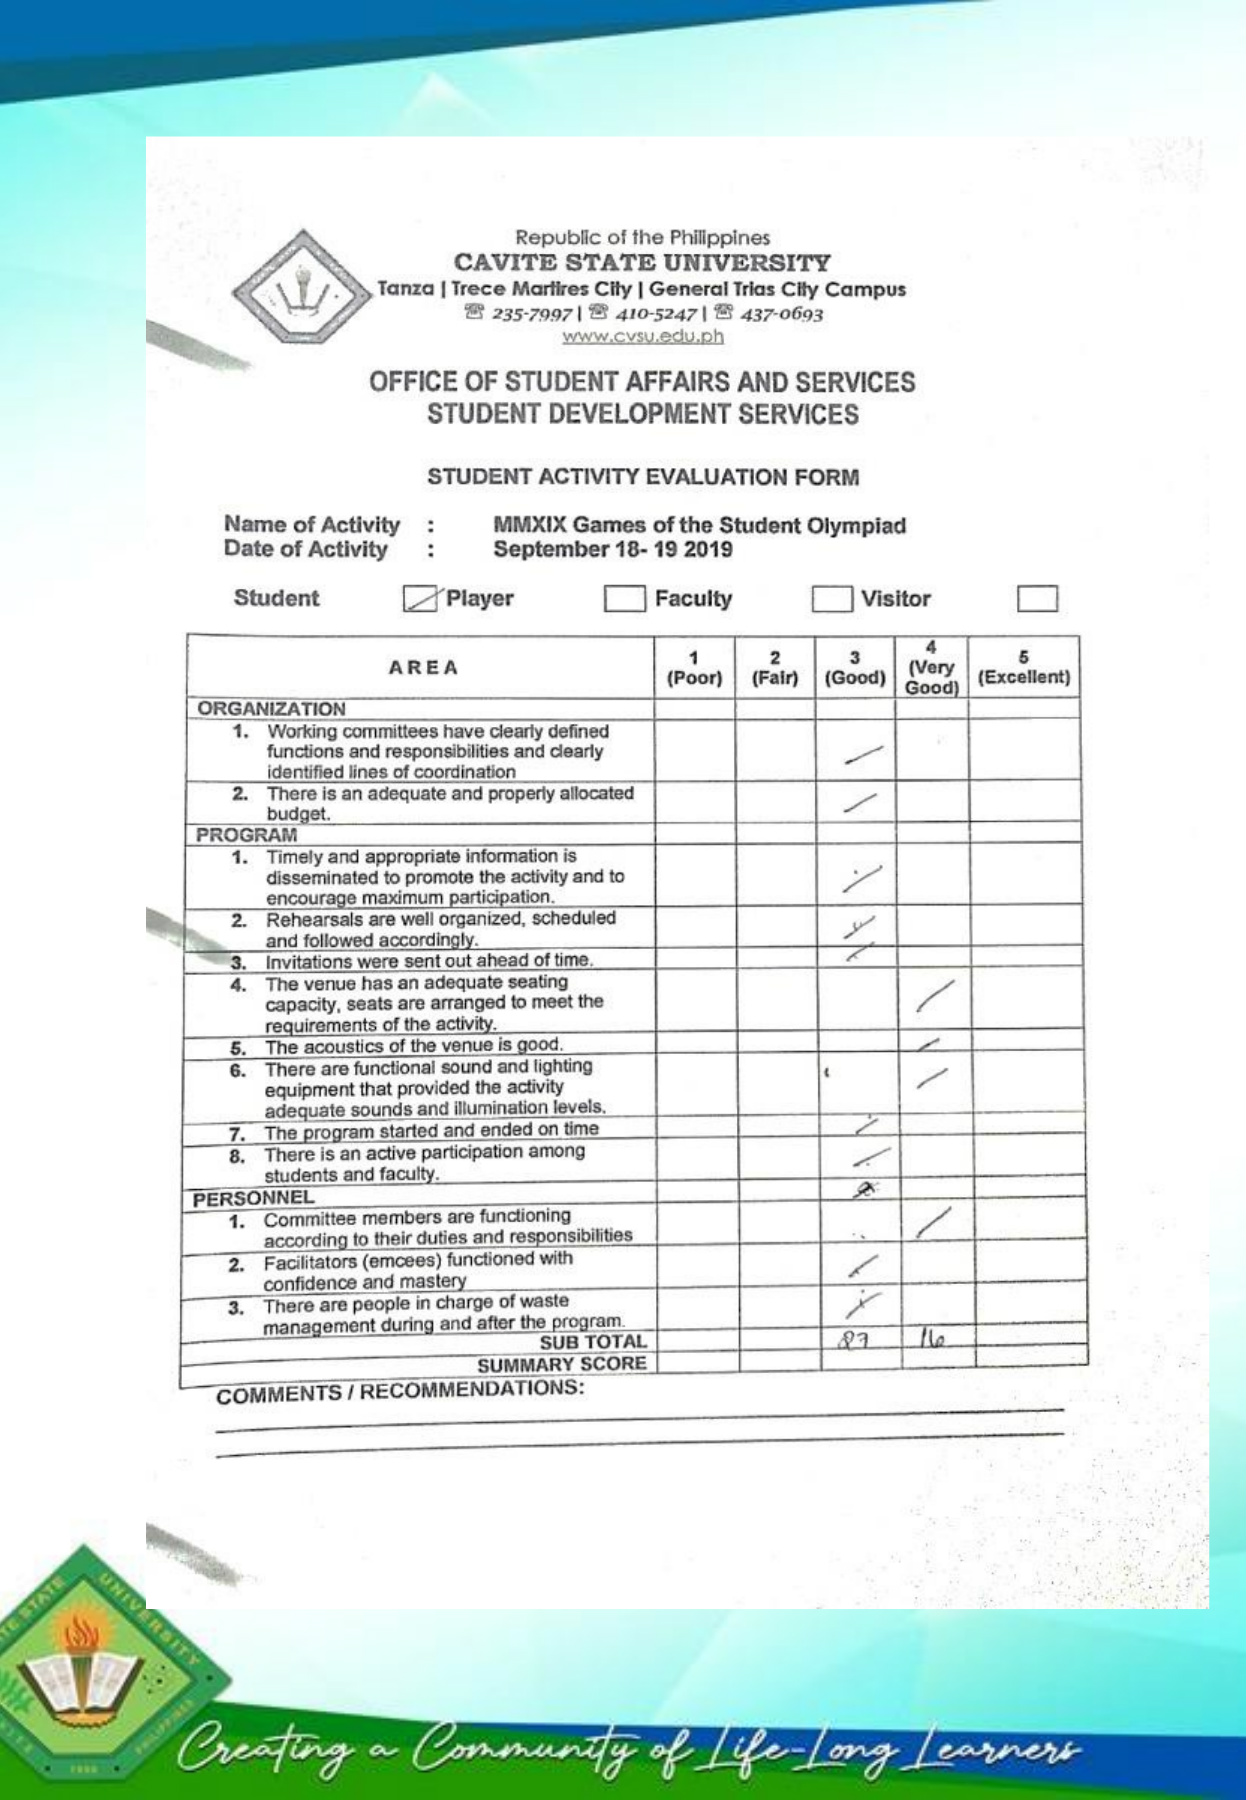 Republic of the Philippines
CAVITE STATE UNIVERSITY
Tanza | Trece Martires City | General Trias City Campus
☏ 235-7997 | ☏ 410-5247 | ☏ 437-0693
www.cvsu.edu.ph
OFFICE OF STUDENT AFFAIRS AND SERVICES
STUDENT DEVELOPMENT SERVICES
STUDENT ACTIVITY EVALUATION FORM
Name of Activity : MMXIX Games of the Student Olympiad
Date of Activity : September 18- 19 2019
Student Player Faculty Visitor
AREA 1 (Poor) 2 (Fair) 3 (Good) 4 (Very Good) 5 (Excellent)
ORGANIZATION
1. Working committees have clearly defined
functions and responsibilities and clearly
identified lines of coordination
2. There is an adequate and properly allocated
budget.
PROGRAM
1. Timely and appropriate information is
disseminated to promote the activity and to
encourage maximum participation.
2. Rehearsals are well organized, scheduled
and followed accordingly.
3. Invitations were sent out ahead of time.
4. The venue has an adequate seating
capacity, seats are arranged to meet the
requirements of the activity.
5. The acoustics of the venue is good.
6. There are functional sound and lighting
equipment that provided the activity
adequate sounds and illumination levels.
7. The program started and ended on time
8. There is an active participation among
students and faculty.
PERSONNEL
1. Committee members are functioning
according to their duties and responsibilities
2. Facilitators (emcees) functioned with
confidence and mastery
3. There are people in charge of waste
management during and after the program.
SUB TOTAL 16
SUMMARY SCORE
COMMENTS / RECOMMENDATIONS:
STATE UNIVERSITY
CAVITE
PHILIPPINES
1906
Creating a Community of Life-Long Learners